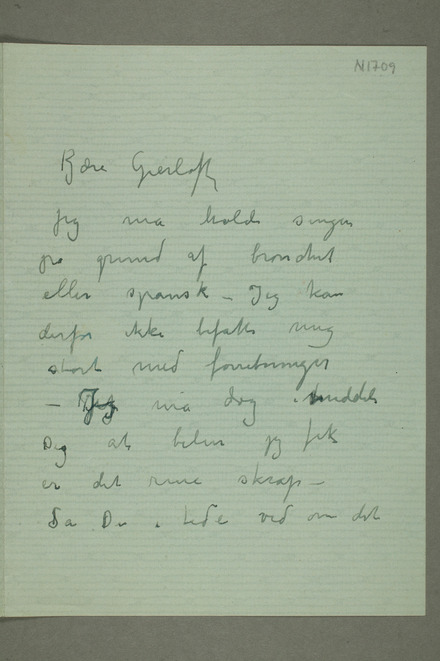 N1709
Kjære Gierløff
Jeg må holde sengen
på grund af bronchit
eller spansk – Jeg kan
derfor ikke befatte mig
stort med forretninger
– Jeg må dog meddele
Dig at bilen jeg fik
er det rene skrap –
Så Du i tide ved om det